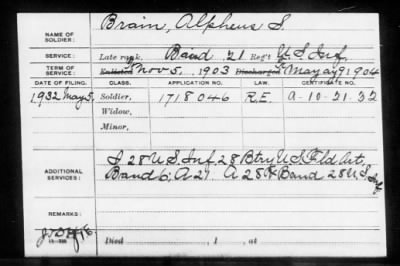 NAME OF SOLDIER: Brain, Alpheus S.
SERVICE: Late rank, Band 21 Reg't U.S. Inf.
TERM OF SERVICE: Enlisted Nov 5, 1903 Discharged May 9, 1904
DATE OF FILING. CLASS. APPLICATION NO. LAW. CERTIFICATE NO.
1932 May 5, Soldier, 1718046 R.E. A-10-21-32
Widow,
Minor,
I 28 U.S. Inf, 28 Btry U.S. Fld Art,
ADDITIONAL SERVICES: Band 6; A 21. A 28 & Band 28 U.S. Inf
REMARKS:
Died , 1 , at